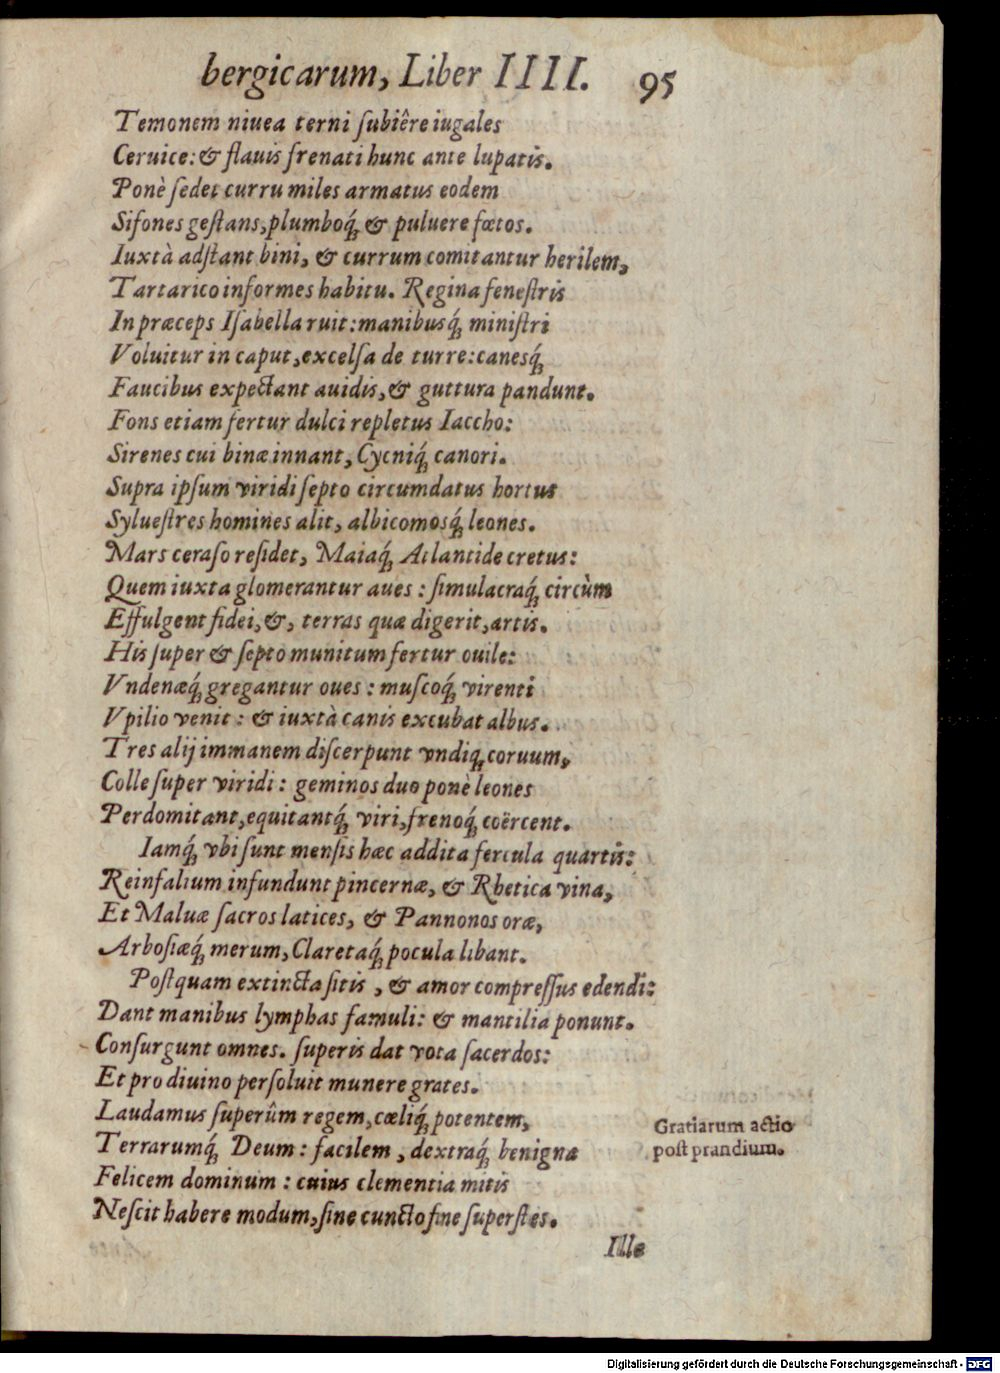 bergicarum, Liber IIII. 95
Temonem niuea terni ſubiêre iugales
Ceruice: & flauis frenati hunc ante lupatis.
Ponè ſedet curru miles armatus eodem
Sifones geſtans, plumboq́; & puluere fœtos.
Iuxtà adſtant bini, & currum comitantur herilem,
Tartarico informes habitu. Regina feneſtris
In præceps Iſabella ruit: manibusq́; miniſtri
Voluitur in caput, excelſa de turre: canesq́;
Faucibus expectant auidis, & guttura pandunt.
Fons etiam fertur dulci repletus Iaccho:
Sirenes cui binæ innant, Cycniq́; canori.
Supra ipſum viridi ſepto circumdatus hortus
Sylueſtres homines alit, albicomosq́; leones.
Mars ceraſo reſidet, Maiaq́; Atlantide cretus:
Quem iuxta glomerantur aues: ſimulacraq́; circùm
Effulgent fidei, &, terras quæ digerit, artis.
His ſuper & ſepto munitum fertur ouile:
Vndenæq́; gregantur oues: muſcoq́; virenti
Vpilio venit: & iuxtà canis excubat albus.
Tres alij immanem diſcerpunt vndiq; coruum,
Colle ſuper viridi: geminos duo ponè leones
Perdomitant, equitantq́; viri, frenoq́; coërcent.
Iamq́; vbi ſunt menſis hæc addita fercula quartis:
Reinfalium infundunt pincernæ, & Rhetica vina,
Et Maluæ ſacros latices, & Pannonos oræ,
Arboſiæq́; merum, Claretaq́; pocula libant.
Poſtquam extincta ſitis, & amor compreſſus edendi:
Dant manibus lymphas famuli: & mantilia ponunt.
Conſurgunt omnes. ſuperis dat vota ſacerdos:
Et pro diuino perſoluit munere grates.
Laudamus ſuperûm regem, cœliq́; potentem,
Terrarumq́; Deum: facilem, dextraq́; benigna
Felicem dominum: cuius clementia mitis
Neſcit habere modum, ſine cuncto fine ſuperſtes.
Gratiarum actio
poſt prandium.
Ille
Digitalisierung gefördert durch die Deutsche Forschungsgemeinschaft - DFG